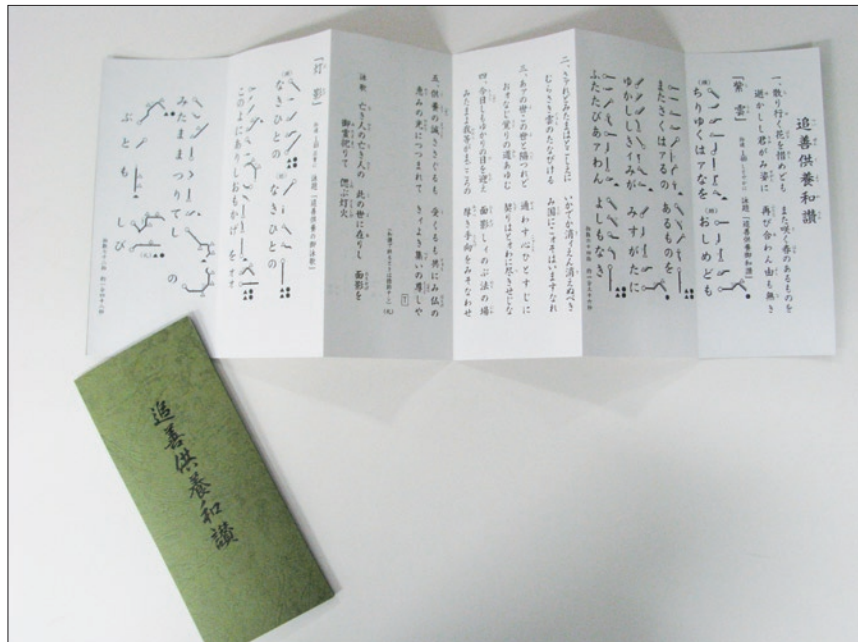 追善供養和讃
一、散り行く花を惜めども また咲く春のあるものを
逝かしし君がみ姿に 再び合わん由も無き
「紫雲」
ちりゆくはァなを おしめども
またさくはァるの あるものを
ゆかししきィみが みすがたに
ふたたびあァわん よしもなき
二、さァれどみたまはとこしえに いかでか消ィえん消えぬべき
むらさき雲のたなびける み国にこォそはいますなれ
三、あァの世この世と隔つれど 通わす心ひとすじに
おなじ覚りの道あゆむ 契りはとォわに尽きせじな
四、今日しもゆかりの日を迎え 面影しィのぶ法の場
みたまま我等がまごころの 厚き手向をみそなわせ
五、供養の誠ささぐるも 受くるも共にみ仏の
恵みの光につつまれて きィよき集いの尊しや
詠歌 亡き人の亡き人の 此の世に在りし 面影を
御霊祀りて 偲ぶ灯火
「灯影」
なきひとの なきひとの
このよにありしおもかげ をォォ
みたままつりてし の
ぶともしび
追善供養和讃